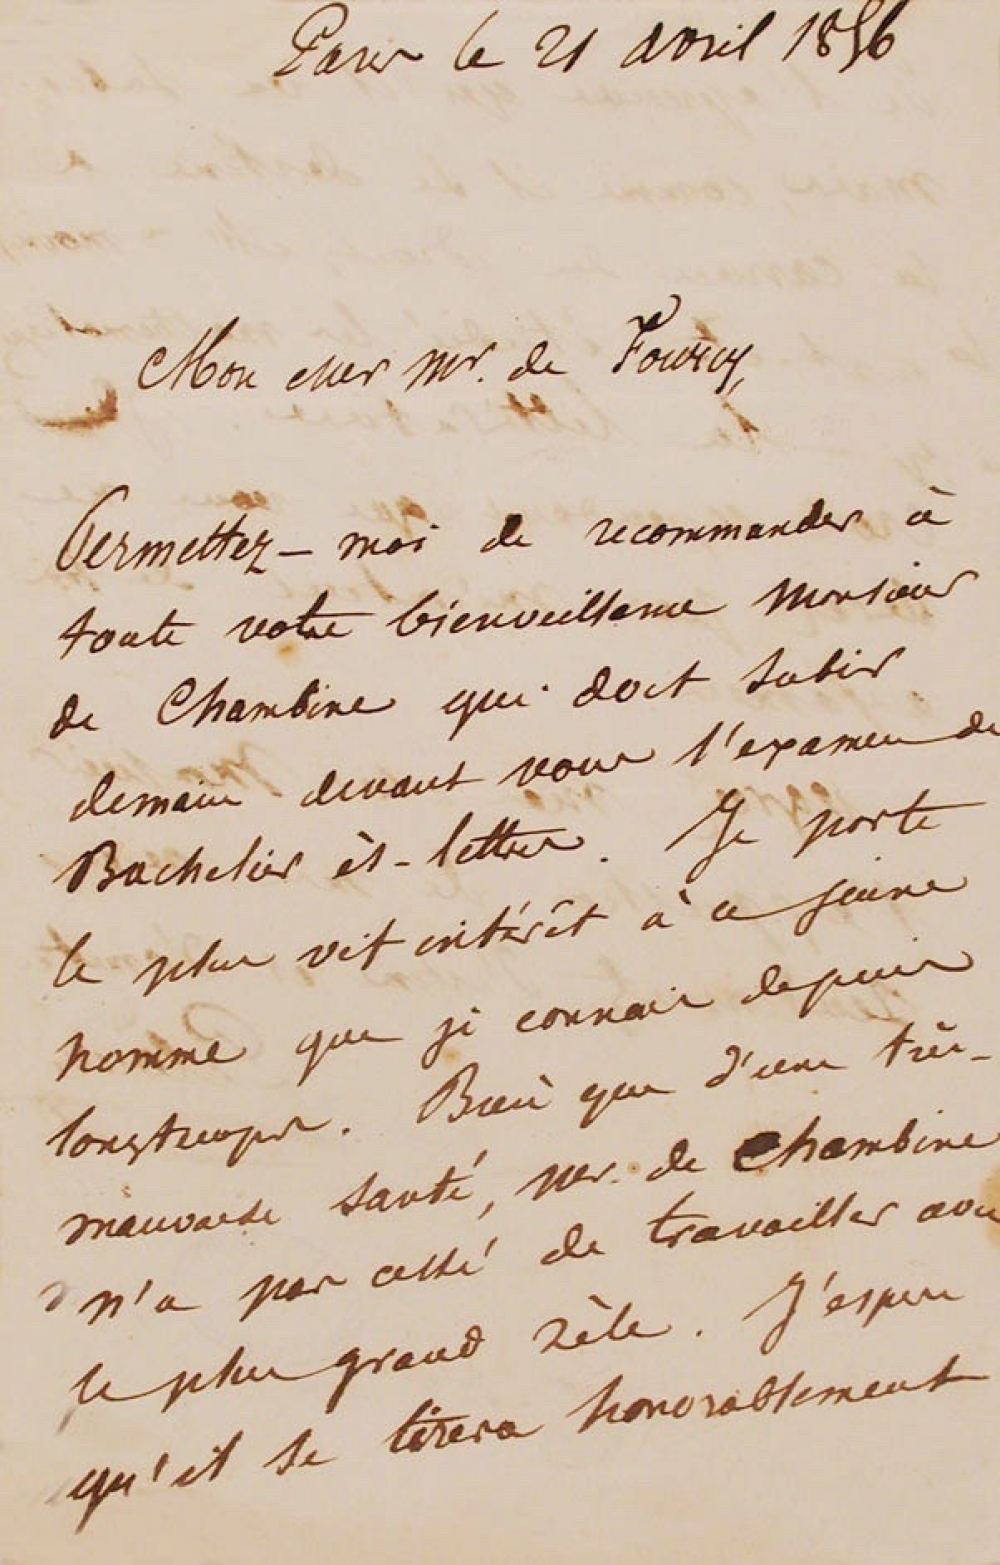 Paris le 21 avril 1856
Mon cher Mr. de Fourcy,
Permettez-moi de recommander à
toute votre bienveillance Monsieur
de Chambine qui doit subir
demain devant vous l'examen de
Bachelier ès-lettres. Je porte
le plus vif intérêt à ce jeune
homme que je connais depuis
longtemps. Bien que d'une très-
mauvaise santé, Mr. de Chambine
n'a pas cessé de travailler avec
le plus grand zèle. J'espère
qu'il se tirera honorablement